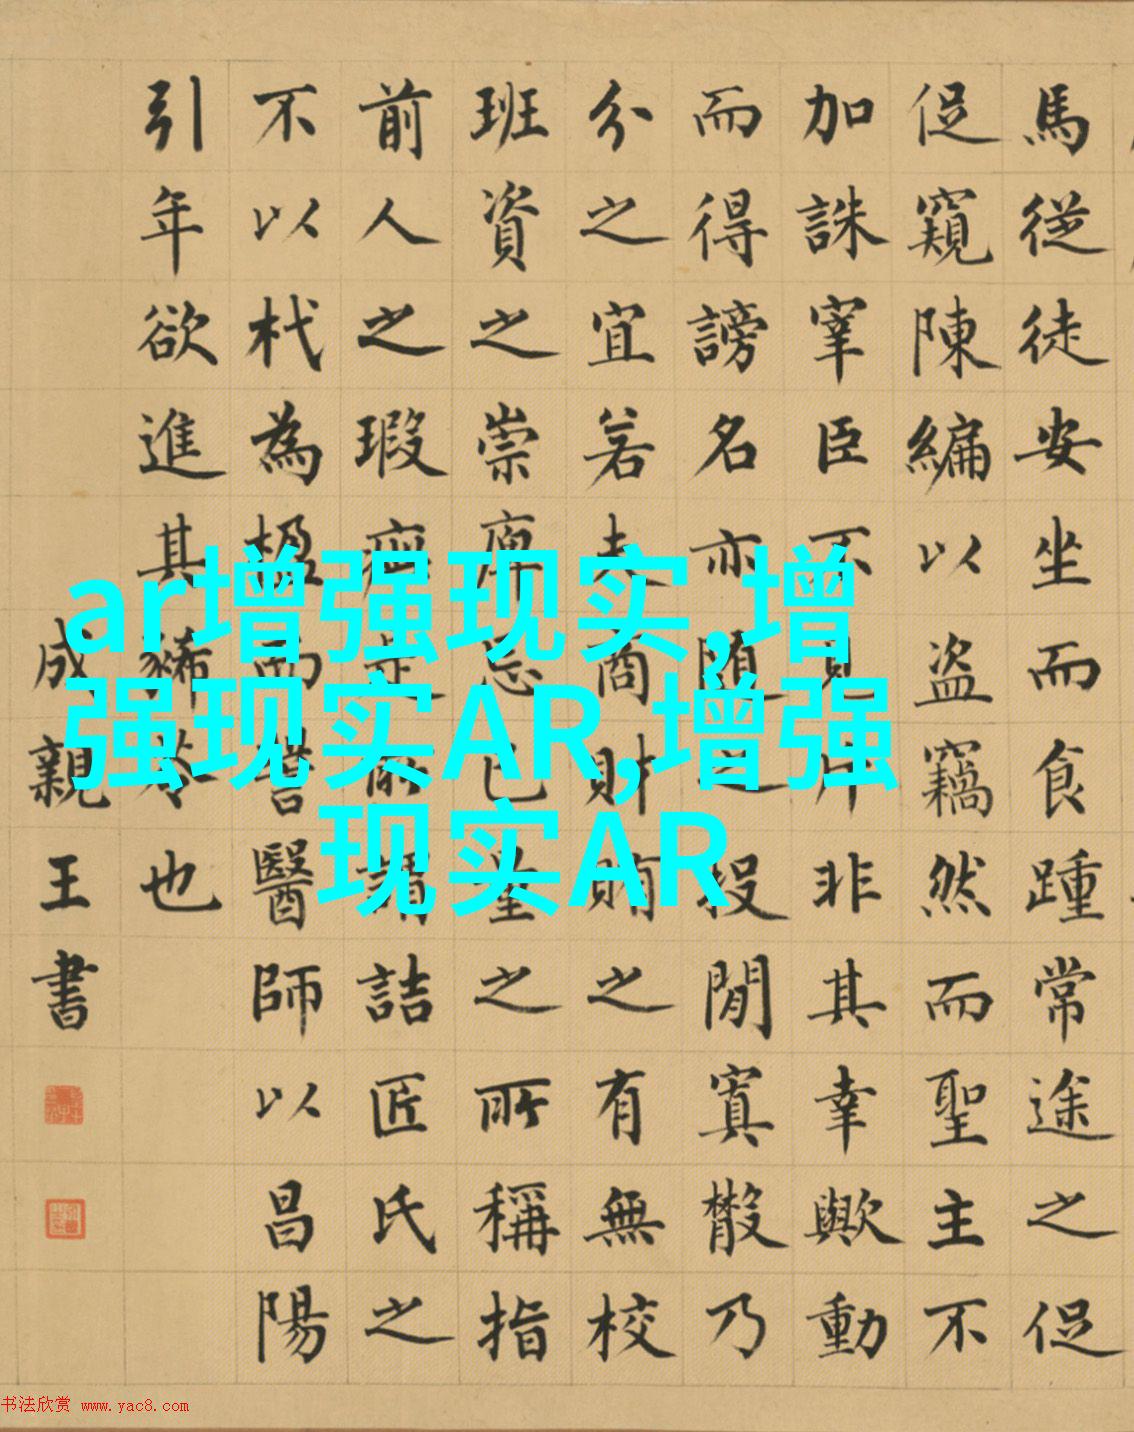 馬從徒安坐而食踵常途之促
促窺陳編以盗竊然而聖主不
加誅宰臣不見斥非其幸歟動
而得謗名亦随之投閒寘散乃
分之宜若夫商財賄之有無校
班資之崇庳忘己量之所稱指
前人之瑕疵是所謂詰匠氏之
不以杙為楹而訾醫師以昌陽
引年欲進其豨苓也
成親王書
ar增强现实,增
强现实AR,增强
现实AR
书法欣赏 www.yac8.com